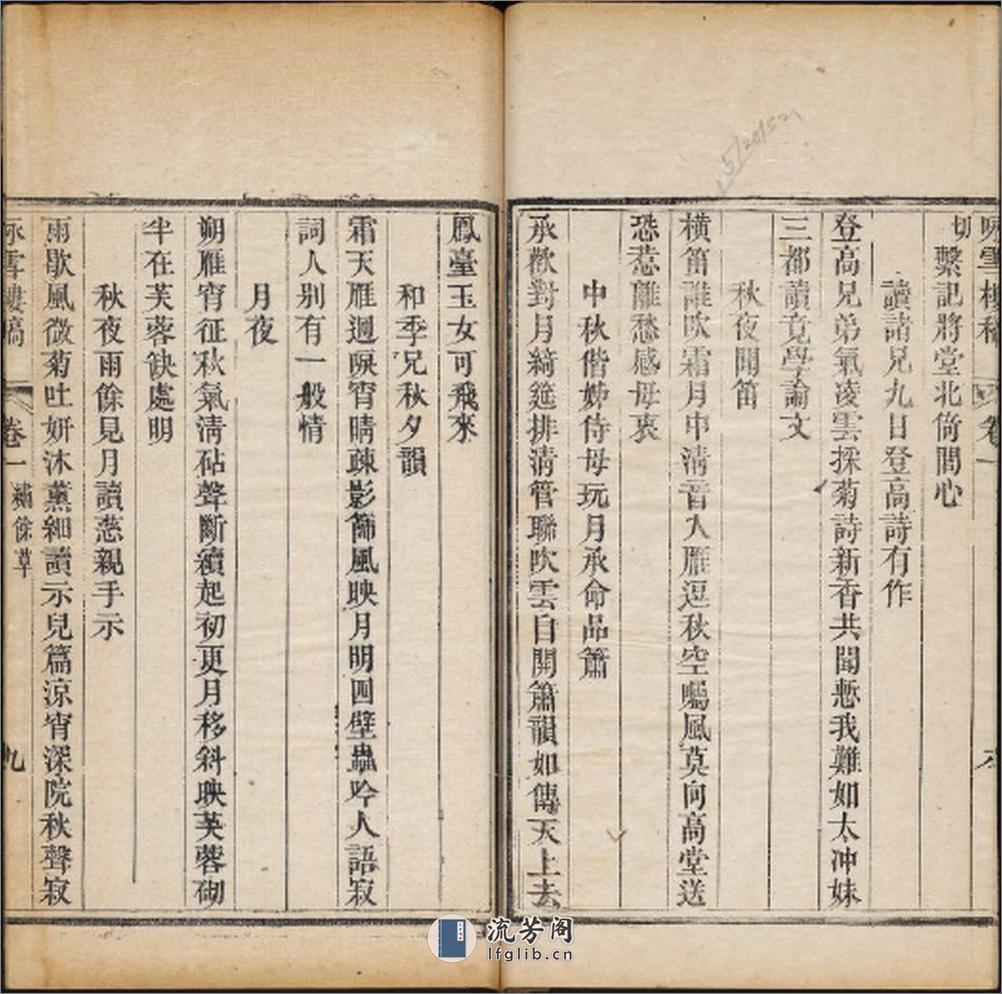 切繫記將堂北倚閭心
讀諸兄九日登高詩有作
登高兄弟氣凌雲採菊詩新香共聞慙我難如太冲妹
三都讀竟學論文
秋夜聞笛
橫笛誰吹霜月中清音入雁逗秋空囑風莫向高堂送
恐惹離愁感母衷
中秋偕姊侍母玩月承命品簫
承歡對月綺筵排清管聯吹雲自開簫韻如傳天上去
鳳臺玉女可飛來
和季兄秋夕韻
霜天雁迴唳宵晴疎影篩風映月明四壁蟲吟人語寂
詞人別有一般情
月夜
朔雁宵征秋氣清砧聲斷續起初更月移斜映芙蓉砌
半在芙蓉缺處明
秋夜雨餘見月讀慈親手示
雨歇風微菊吐妍沐薰細讀示兒篇涼宵深院秋聲寂
卷一 繡餘草 九
5/20/521
流芳阁
lfglib.cn